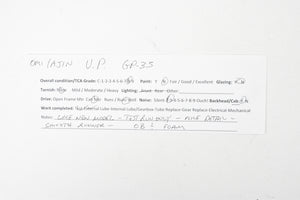 OMI/AJIN U.P. GP-35
Overall condition/TCA Grade: C-1-2-3-4-5-6-7-8-9 Paint: Y N Fair / Good / Excellent Glazing: Y N
Tarnish: None Mild / Moderate / Heavy Lighting: Other
Drive: Open Frame Mtr Can Mtr Runs / Runs Well Noise: Silent 2-3-4-5-6-7-8-9 Backhead/Cab: Y N
Work completed: Test External Lube-Internal Lube/Gearbox/Side Tube Replace Gear Replace-Electrical Mechanical
Notes: LIKE NEW MODEL - TEST RUN ONLY - FINE DETAIL -
SMOOTH RUNNER - OB & FOAM